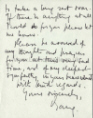 to take a long rest over.
If there is anything at all
I could do for you please let
me know.
Please be assured of
my thoughts and prayers
for you at this very sad
time, and my deepest
sympathy in your bereavement
With kind regards,
Yours sincerely,